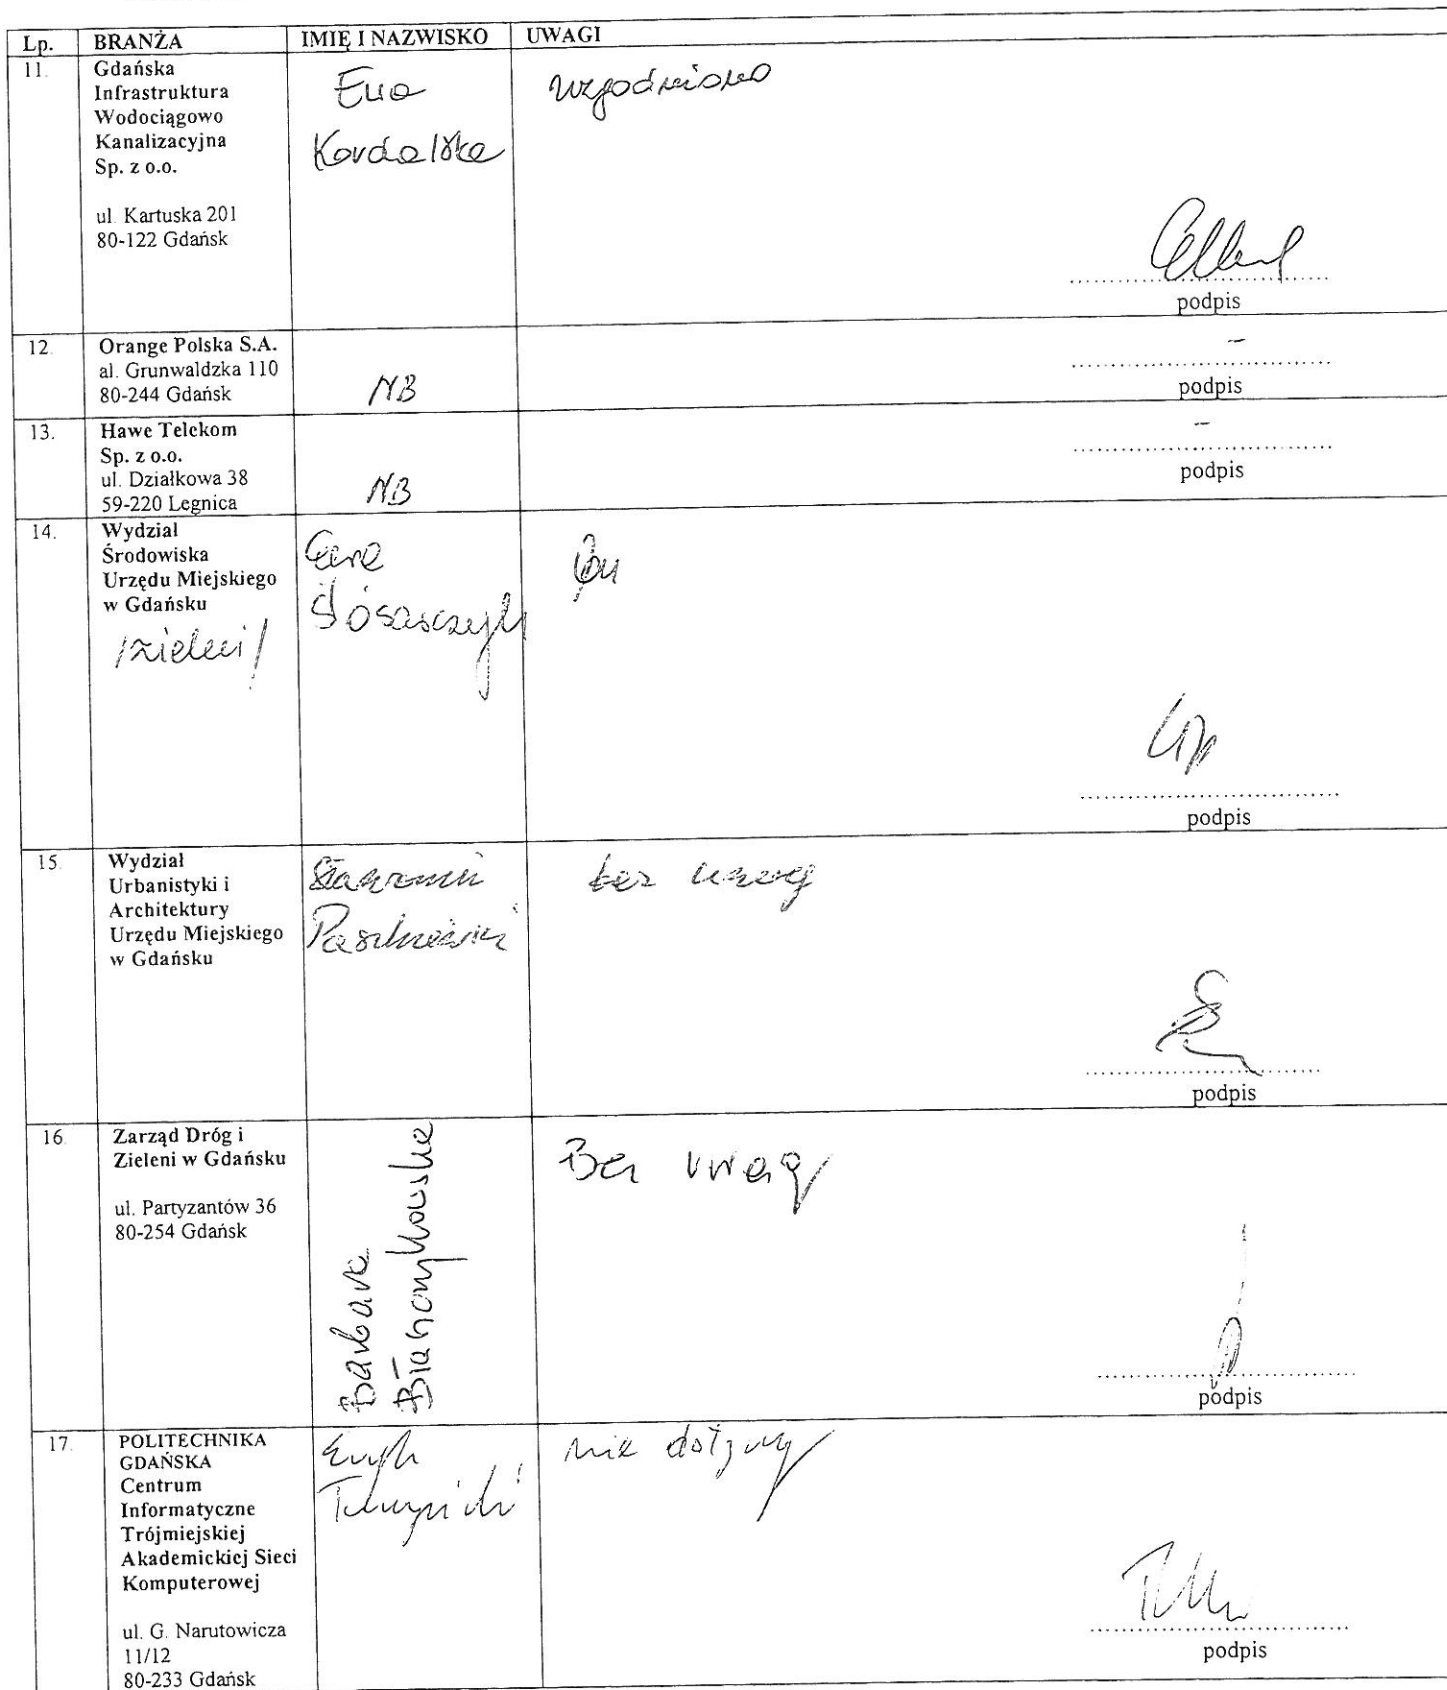 Lp. BRANŻA IMIĘ I NAZWISKO UWAGI
11. Gdańska
Infrastruktura
Wodociągowo
Kanalizacyjna
Sp. z o.o.
ul. Kartuska 201
80-122 Gdańsk
Ewa
Kordalska
uzgodniono
podpis
12. Orange Polska S.A.
al. Grunwaldzka 110
80-244 Gdańsk
NB
-
podpis
13. Hawe Telekom
Sp. z o.o.
ul. Działkowa 38
59-220 Legnica
NB
-
podpis
14. Wydział
Środowiska
Urzędu Miejskiego
w Gdańsku
/zieleń/
podpis
15. Wydział
Urbanistyki i
Architektury
Urzędu Miejskiego
w Gdańsku
bez uwag
podpis
16. Zarząd Dróg i
Zieleni w Gdańsku
ul. Partyzantów 36
80-254 Gdańsk
Barbara
Bez uwag
podpis
17. POLITECHNIKA
GDAŃSKA
Centrum
Informatyczne
Trójmiejskiej
Akademickiej Sieci
Komputerowej
ul. G. Narutowicza
11/12
80-233 Gdańsk
nie dotyczy
podpis